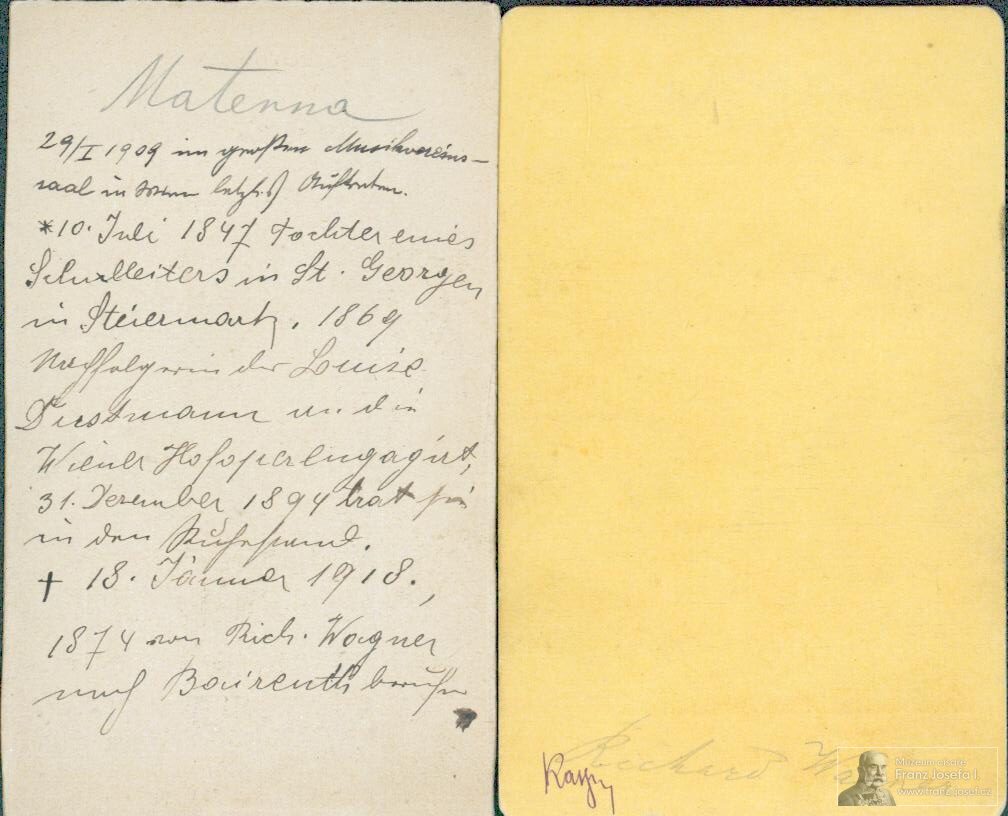 Materna
29/I 1909 im großen Musikvereins-
saal in Wien letztes Auftreten.
*10. Juli 1847 Tochter eines
Schulleiters in St. Georgen
in Steiermark, 1869
Nachfolgerin der Louise
Dustmann an die
Wiener Hofoper engagirt,
31. Dezember 1894 trat sie
in den Ruhestand.
† 18. Jänner 1918.,
1874 von Rich. Wagner
nach Baireuth berufen
Richard
Muzeum císaře
Franz Josefa I.
www.franz-josef.cz